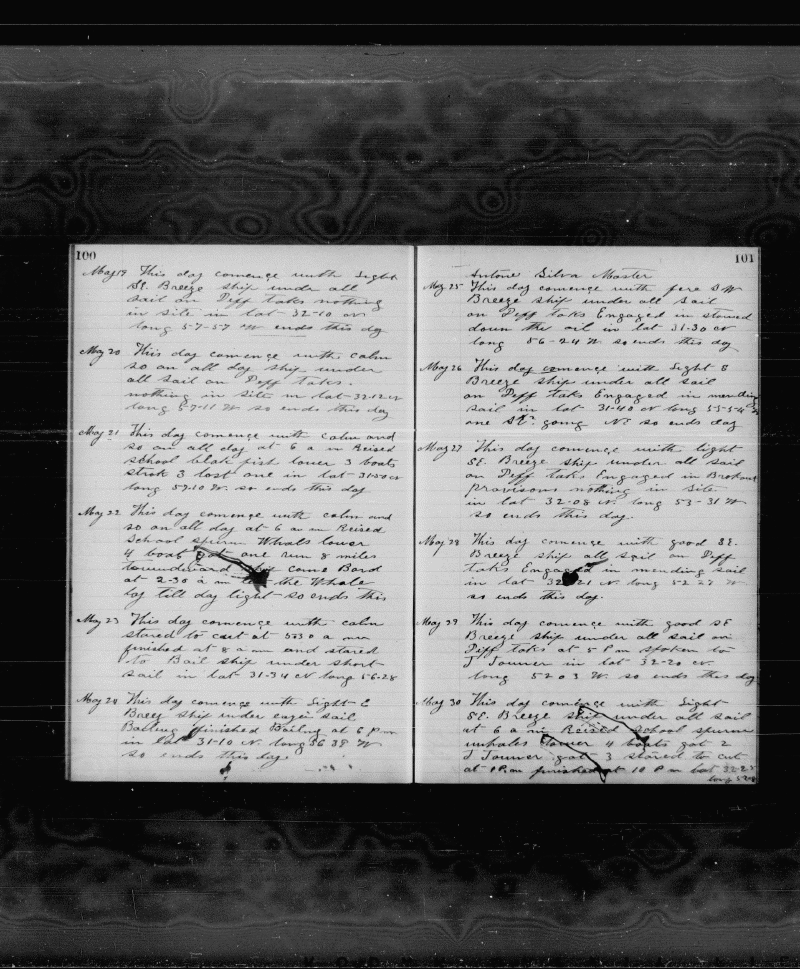 100
May 19 This day comence with Light
SE. Breeze ship under all
sail on Diff taks nothing
in site in lat 32-10 N
long 57-57 W ends this day
May 20 This day comence with calm
so on all day ship under
all sail on Diff taks.
nothing in site in lat 32.12 N
long 57-11 W so ends this day
May 21 This day comence with calm and
so on all day at 6 a m Reised
school blak fish lower 3 boats
strok 3 lost one in lat 31-50 N
long 57-10 W. so ends this day
May 22 This day comence with calm and
so on all day at 6 a m Reised
School spurm Whals lower
4 boats got one run 8 miles
towindward ship come Bord
at 2-30 a m the Whale
lay till day light so ends this
May 23 This day comence with calm
stared to cut at 5-30 a m
finished at 8 a m and stared
to Bail ship under short
sail in lat 31-34 N long 56-28
May 24 This day comence with Light E
Breeg ship under eazei sail
Bailing finished Bailing at 6 P m
in lat 31-10 N. long 56 38 W
so ends this day.
101
Antone Silva Master
May 25 This day comence with fere S W
Breeze ship under all sail
on Diff taks Engaged in stowed
down the oil in lat 31-30 N
long 56-24 W so ends this day
May 26 This day comence with Light E
Breeze ship under all sail
on Diff taks Engaged in mending
sail in lat 31-40 N long 55-54 W
one SE. going N. so ends day
May 27 This day comence with light
SE. Breeze ship under all sail
on Diff taks Engaged in Brokout
provisons nothing in site
in lat 32-08 N. long 53-31 W
so ends this day.
May 28 This day comence with good SE.
Breeze ship under all sail on Diff
taks Engaged in mending sail
in lat 32 21 N long 52 27 W
as ends this day.
May 29 This day comence with good SE
Breeze ship under all sail on
Diff taks at 5 P m spoken to
J Touner in lat 32-20 N.
long 52 03 W. so ends this day
May 30 This day comence with Light
SE. Breeze ship under all sail
at 6 a m Reised school spurm
whales lower 4 boats got 2
J Touner got 3 stared to cut
at P.m finished at 10 P m lat 32-25
long